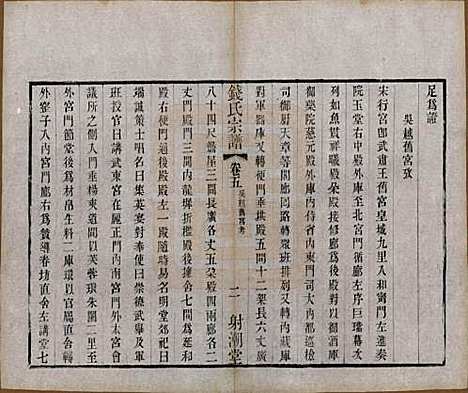 足爲證
吳越舊宮攷
宋行宮卽武肅王舊宮皇城九里入和寧門左進奏
院玉堂右中殿外庫至北宮門循廊左序巨璫幕次
列如魚貫祥曦殿朶殿接修廊爲後殿以對以御酒庫
御藥院慈元殿外庫內侍省內東門司大內都巡檢
司御厨天章等閣廊囘路轉衆班排列又轉內藏庫
對軍器庫又轉便門垂拱殿五間十二架長六丈廣
錢氏宗譜
卷五
吳越舊宮考
二
射潮堂
八十四尺簷屋三間長廣各丈五朶殿四兩廊各二
丈門殿門三間內龍墀折檻殿後擁舍七間爲延和
殿右便門通後殿殿左一殿隨時易名明堂曰
端誠策士唱名曰集英宴對奉使曰崇德武舉及軍
班授官曰講武東宮在麗正門內南宮門外本宮會
議所之側入門垂楊夾道間以芙蓉環朱闌二里至
外宮門節堂後爲材帛生料二庫環以官屬直舍轉
外窰子入內宮門廊右爲贊導春坊直舍左講堂七